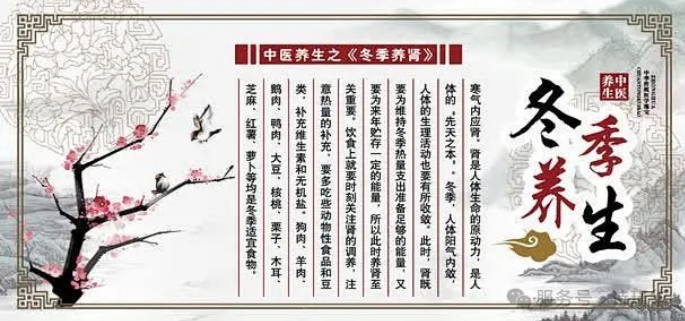 中医养生之《冬季养肾》
冬季养生
中医养生
寒气内应肾。肾是人体生命的原动力，是人
体的“先天之本”。冬季，人体阳气内敛，
人体的生理活动也要有所收敛。此时，肾既
要为维持冬季热量支出准备足够的能量，又
要为来年贮存一定的能量，所以此时养肾至
关重要。饮食上就要时刻关注肾的调养，注
意热量的补充，要多吃些动物性食品和豆
类，补充维生素和无机盐。狗肉、羊肉、
鹅肉、鸭肉、大豆、核桃、栗子、木耳、
芝麻、红薯、萝卜等均是冬季适宜食物。
服务号